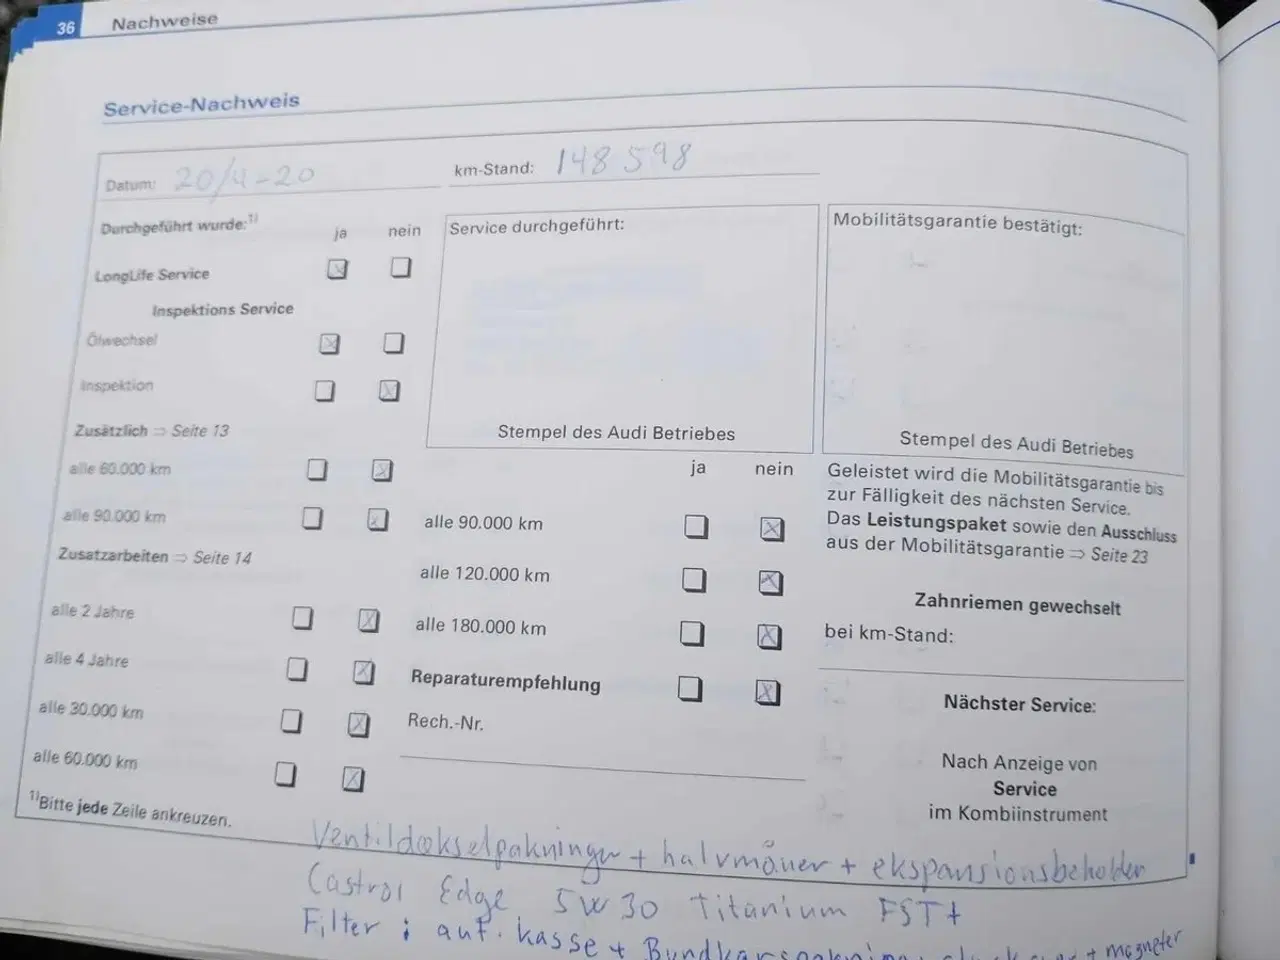 36 Nachweise
Service-Nachweis
Datum: 20/4-20
km-Stand: 148598
Durchgeführt wurde:1)
ja nein
LongLife Service
Inspektions Service
Ölwechsel
Inspektion
Zusätzlich ⇒ Seite 13
alle 60.000 km
alle 90.000 km
Zusatzarbeiten ⇒ Seite 14
alle 2 Jahre
alle 4 Jahre
alle 30.000 km
alle 60.000 km
1)Bitte jede Zeile ankreuzen.
Service durchgeführt:
Stempel des Audi Betriebes
ja nein
alle 90.000 km
alle 120.000 km
alle 180.000 km
Reparaturempfehlung
Rech.-Nr.
Mobilitätsgarantie bestätigt:
Stempel des Audi Betriebes
Geleistet wird die Mobilitätsgarantie bis
zur Fälligkeit des nächsten Service.
Das Leistungspaket sowie den Ausschluss
aus der Mobilitätsgarantie ⇒ Seite 23
Zahnriemen gewechselt
bei km-Stand:
Nächster Service:
Nach Anzeige von
Service
im Kombiinstrument
Ventildækselpakninger + halvmåner + ekspansionsbeholder
Castrol Edge 5W30 Titanium FST +
Filter : aut. kasse + + magneter